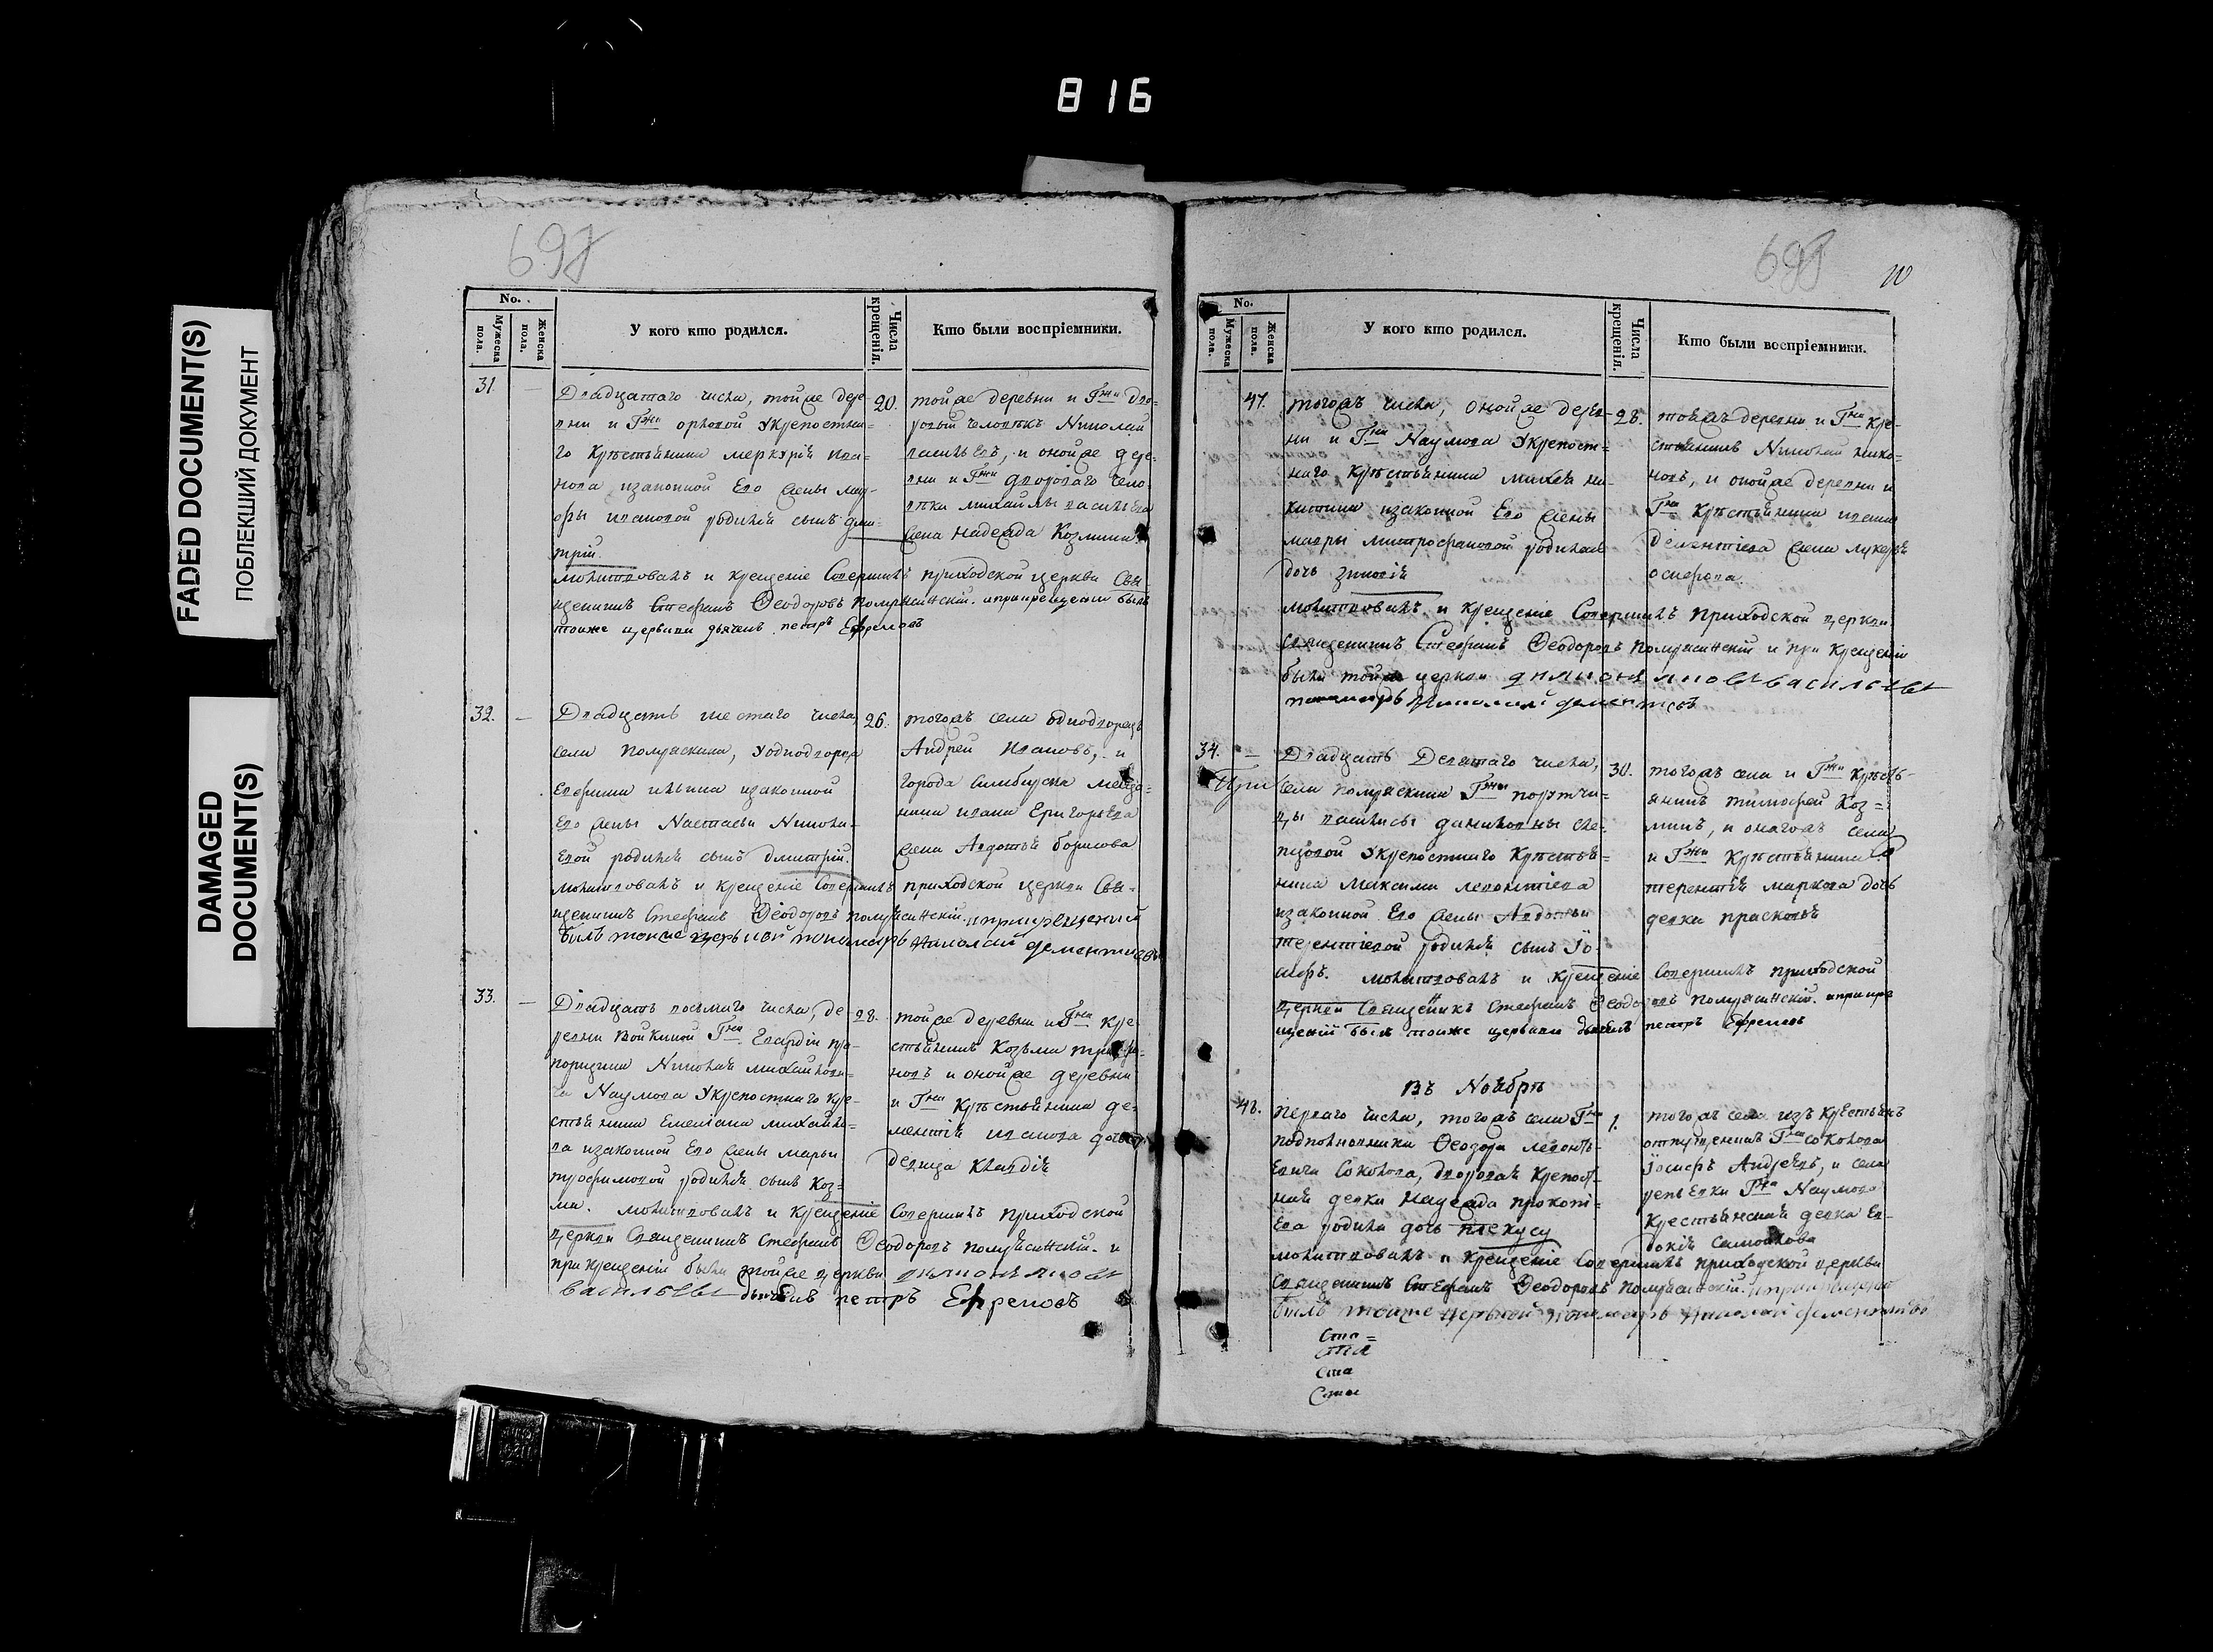 816
FADED DOCUMENT(S)
ПОБЛЕКШИЙ ДОКУМЕНТ
DAMAGED
DOCUMENT(S)
No.
Мужеска пола.
Женска пола.
У кого кто родился.
Числа крещенія.
Кто были воспріемники.
31.
Двадцатаго числа, тойже дере-
вни и Гжи орловой Укрепостна-
го Крѣстьянина меркурія ива-
нова изаконной Его жены мав-
ры ивановой родился сынъ дми-
трій.
20.
тойже деревни и Гжи дво-
ровый человѣкъ Николай
васильевъ, и онойже дере-
вни и Гжи двороваго чело-
вѣка михаилы васильева
жена надежда Козмина
молитвовалъ и крещеніе Совершилъ приходской церкви Свя-
щенникъ Стефанъ Ѳеодоровъ помряскинскій. иприкрещеніи былъ
тоиже церькви дьячекъ петръ Ефремовъ
32.
Двадцать шестаго числа,
села помряскина, Уоднодворца
Ефима ильина изаконной
Его жены Настасьи Никола-
евой родился сынъ дмитрій.
26.
тогожъ села однодворецъ
Андрей Ивановъ, и
города симбирска меща-
нина ивана Григорьева
жена Авдотья борисова
молитвовалъ и крещеніе Совершилъ приходской церкви Свя-
щенникъ Стефанъ Ѳеодоровъ помряскинскій. иприкрещении
былъ тоиже церьквй понамарь Николай дементиевъ
33.
Двадцать восьмаго числа, де-
ревни войкиной Гна Гвардіи пра-
порщика Николая михайлови-
ча Наумова Укрепостнаго кре-
стьянина Емеліана михайло-
ва изаконной Его жены марьи
трофимовой родился сынъ Коз-
ма. молитвовалъ и крещеніе Совершилъ приходской
28.
тойже деревни и Гна кре-
стьянинъ Козьма трифо-
новъ и онойже деревни
и Гна крѣстьянина де-
ментія иванова дочь
девица Клавдія
церкви Священникъ Стефанъ Ѳеодоровъ помряскинскій. и
прикрещеніи были тойже церкви
васильевъ дьячекъ петръ Ефремовъ
No.
Мужеска пола.
Женска пола.
У кого кто родился.
Числа крещенія.
Кто были воспріемники.
47.
тогожъ числа, онойже дерев-
ни и Гна Наумова Укрепост-
наго крѣстьянина михея ни-
китина изаконной Его жены
мавры митрофановой родилась
дочь зиновія
28.
тояжъ деревни и Гна кре-
стьянинъ Николай нико-
новъ, и онойже деревни и
Гна крѣстьянина ивана
дементіева жена лукерья
осифова.
молитвовалъ и крещеніе Совершилъ приходской церкви
священникъ Стефанъ Ѳеодоровъ помряскинскій и при крещеніи
были тойже церкви васильевъ
понамарь Николай дементьевъ
34.
Двадцать Девятаго числа,
села помряскина Гжи порутчи-
цы васильсы даниловны
Укрепостнаго Крѣстья-
нина максима леонтіева
изаконной Его жены Авдотьи
терентіевой родился сынъ Іо-
сифъ. молитвовалъ и крещеніе Совершилъ приходской
30.
тогожъ села и Гжи крѣсть-
янинъ тимофей Коз-
минъ, и оногожъ села
и Гжи крѣстьянина
терентія маркова дочь
девка прасковья
церкви Священникъ Стефанъ Ѳеодоровъ помряскинскій. ипрікре
щеніи былъ тоиже церькви дьячекъ петръ Ефремовъ
Въ Ноябрѣ
48.
перваго числа, тогожъ села Гна
подполковника Ѳеодора леонть-
евича Соколова, дворовая крепост-
ная девка надежда прокопі-
ева родила дочь
1.
тогожъ села изъ крестьянъ
отпущенникъ Гна соколова
Іосифъ Андреевъ, и села
репьевки Гна Наумова
крестьянская девка Ев-
докія Самойлова
молитвовалъ и крещеніе Совершилъ приходской церкви
Священникъ Стефанъ Ѳеодоровъ помряскинскій.
былъ тоиже церьквой понамарь Николай дементиевъ